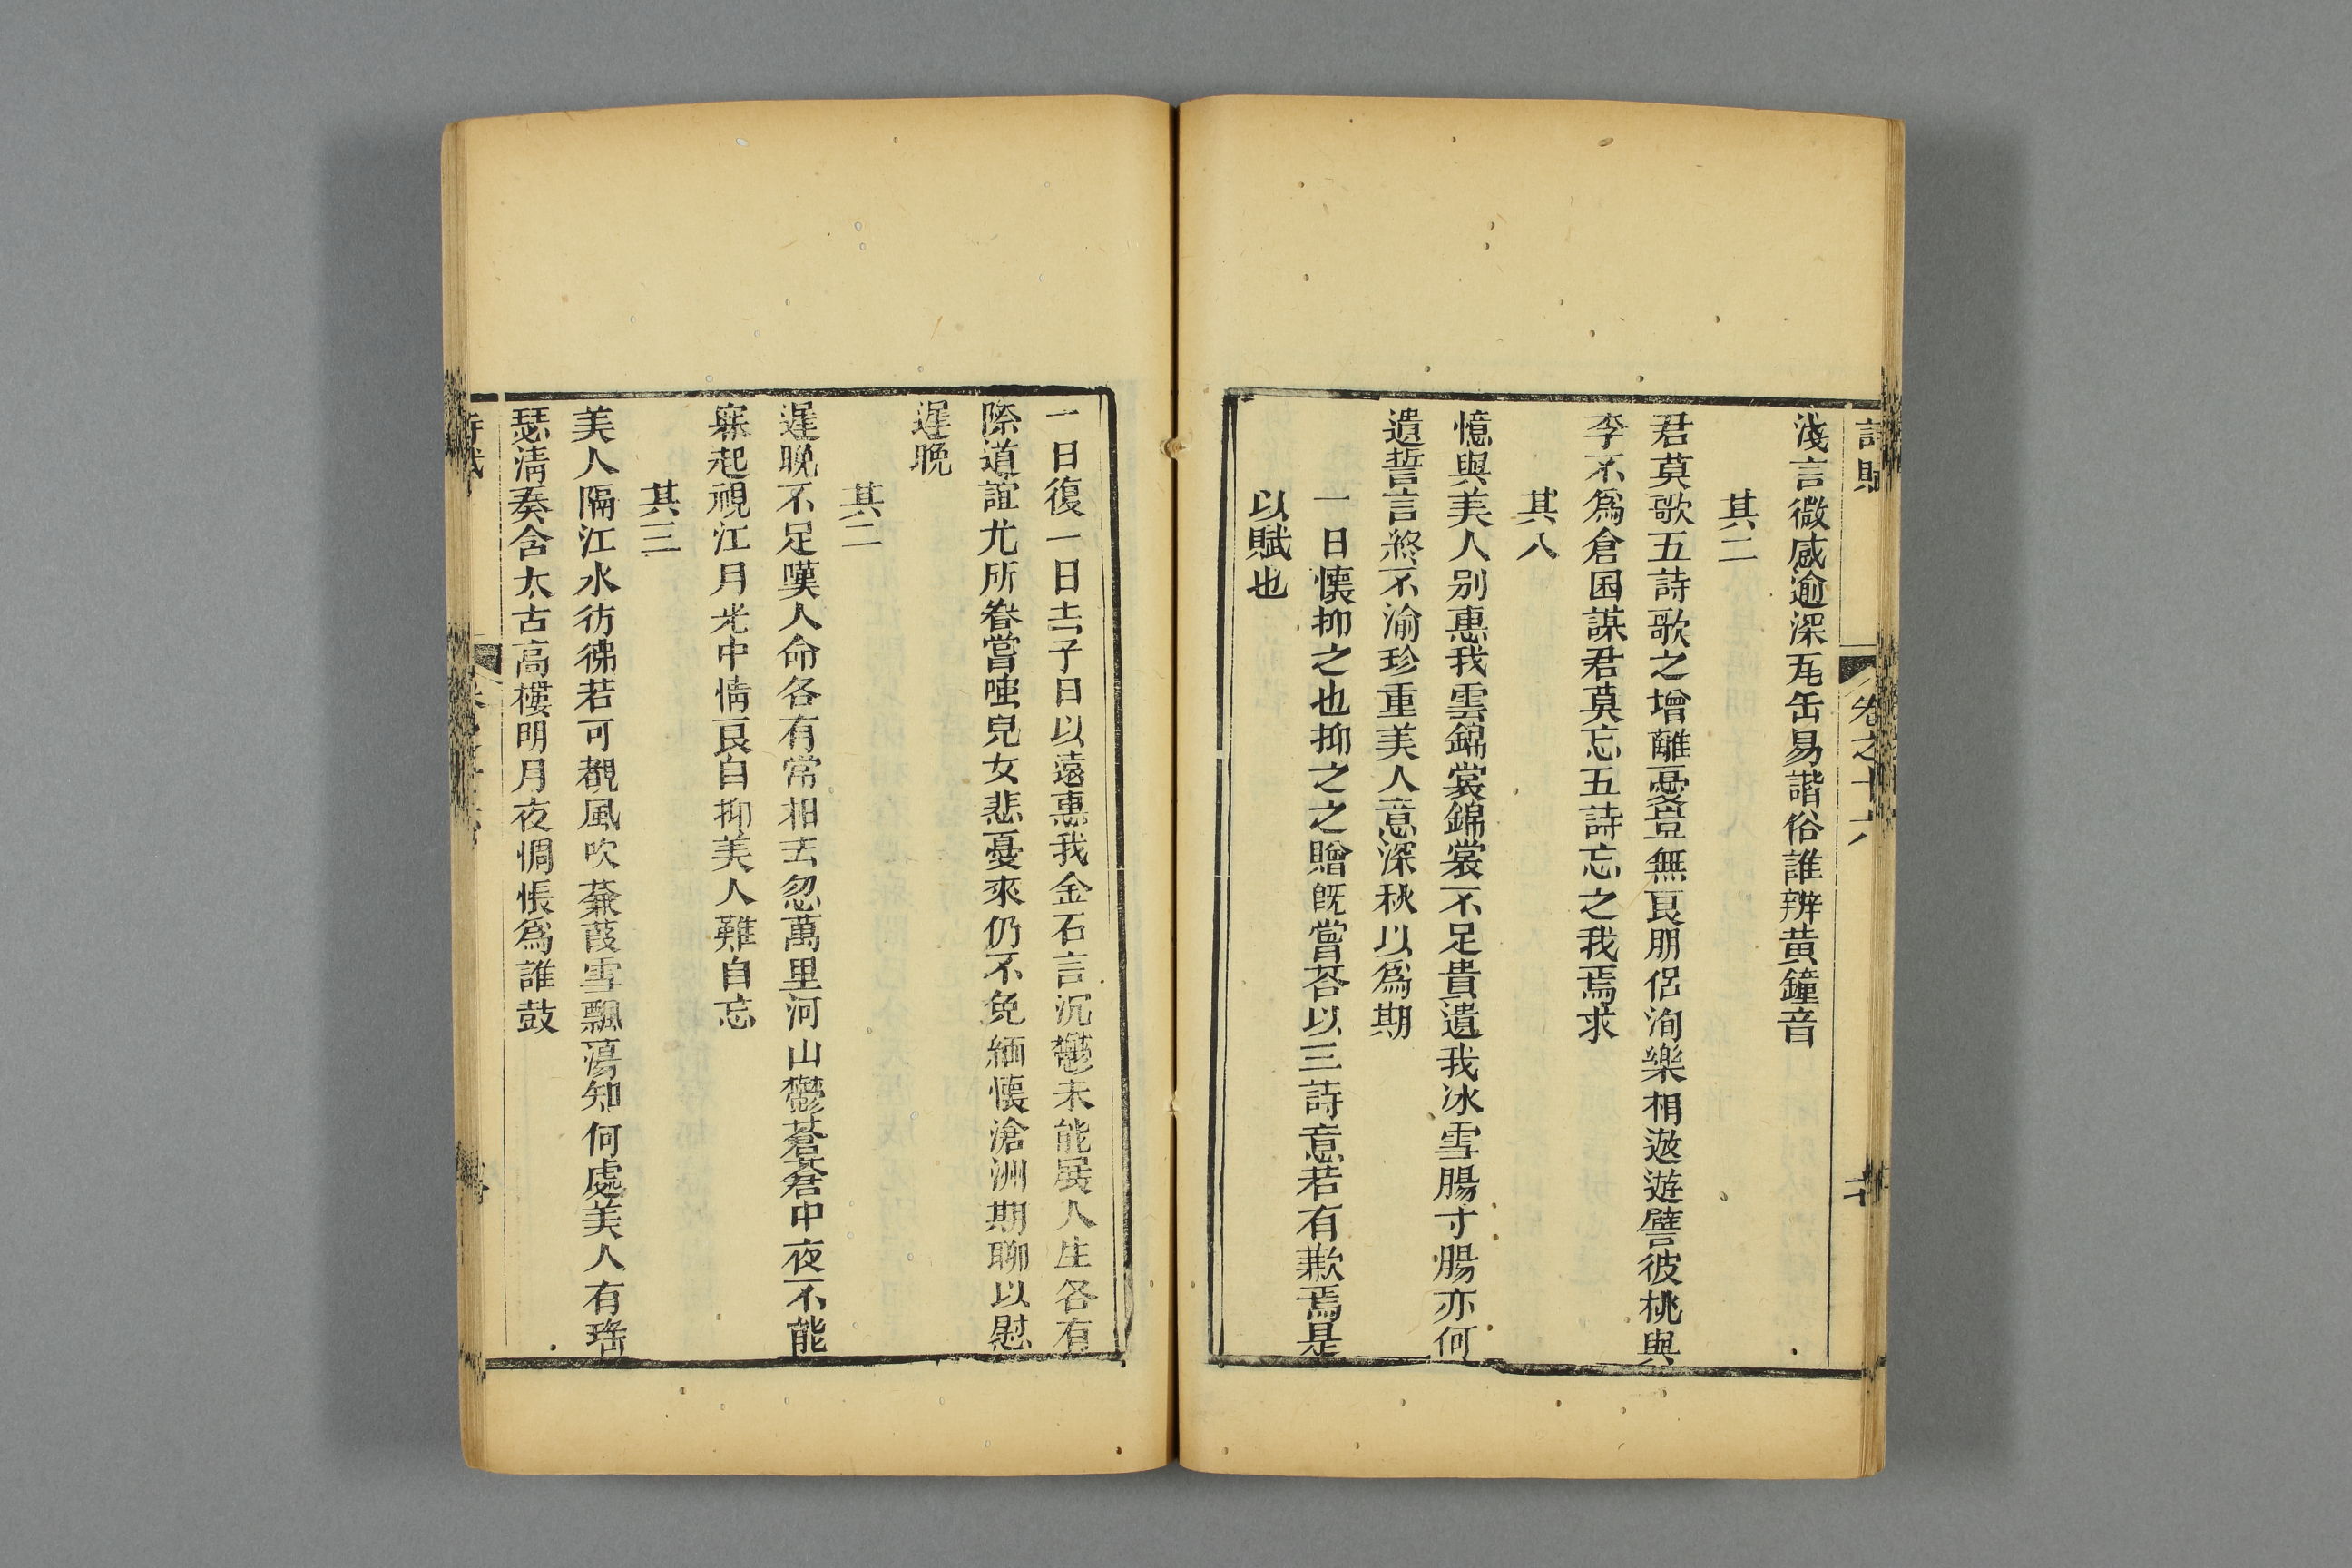 詩賦
卷之十六
淺言微感逾深瓦缶易諧俗誰辨黃鐘音
其二
君莫歌五詩歌之增離憂豈無良朋侶洵樂相遨遊譬彼桃與
李不為倉囷謀君莫忘五詩忘之我焉求
其八
憶與美人别惠我雲錦裳錦裳不足貴遺我冰雪腸寸腸亦何
遺誓言終不渝珍重美人意深秋以為期
一日懷抑之也抑之之贈旣嘗荅以三詩意若有歉焉是
以賦也
一日復一日去子日以遠惠我金石言沉鬱未能展人生各有
際道誼尤所眷嘗嗤兒女悲憂來仍不免緬懷滄洲期聊以慰
遲晚
其二
遲晚不足嘆人命各有常相去忽萬里河山鬱蒼蒼中夜不能
寐起視江月光中情良自抑美人難自忘
其三
美人隔江水彷彿若可覩風吹蒹葭雪飄蕩知何處美人有瑤
瑟淸奏含太古高樓明月夜惆悵為誰鼓